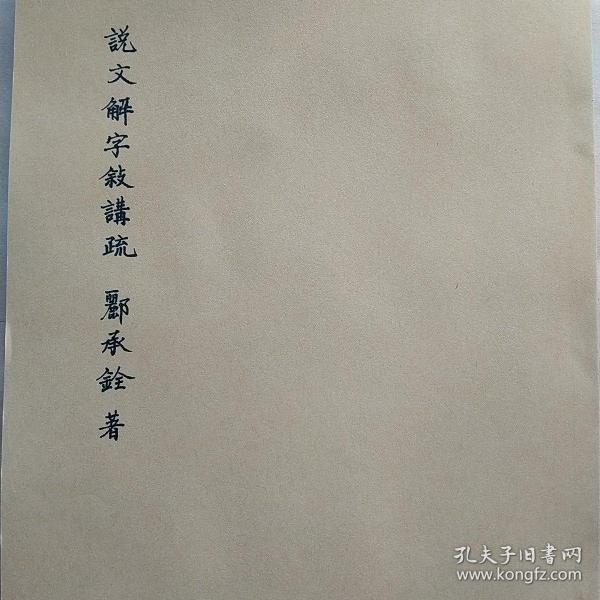 說文解字敍講疏 酈承銓 著
孔夫子旧书网
www.kongfz.com